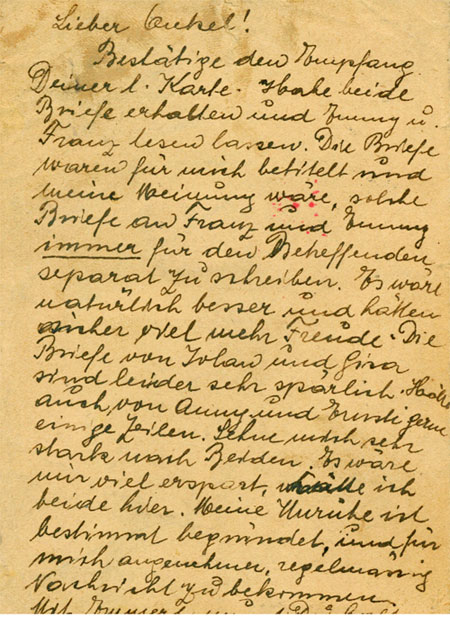 Lieber Onkel!
Bestätige den Empfang
Deiner l. Karte. Habe beide
Briefe erhalten und Emmy u.
Franz lesen lassen. Die Briefe
waren für mich betitelt und
meine Meinung wäre, solche
Briefe an Franz und Emmy
immer für den Betreffenden
separat zu schreiben. Es wäre
natürlich besser und hätten
sicher viel mehr Freude. Die
Briefe von Jolan und Gisa
sind leider sehr spärlich. Hätte
auch von Anny und Ernsti gerne
einige Zeilen. Sehne mich sehr
stark nach Beiden. Es wäre
mir viel erspart, hätte ich
beide hier. Meine Unruhe ist
bestimmt begründet, und für
mich angenehmer, regelmässig
Nachricht zu bekommen.
Mit